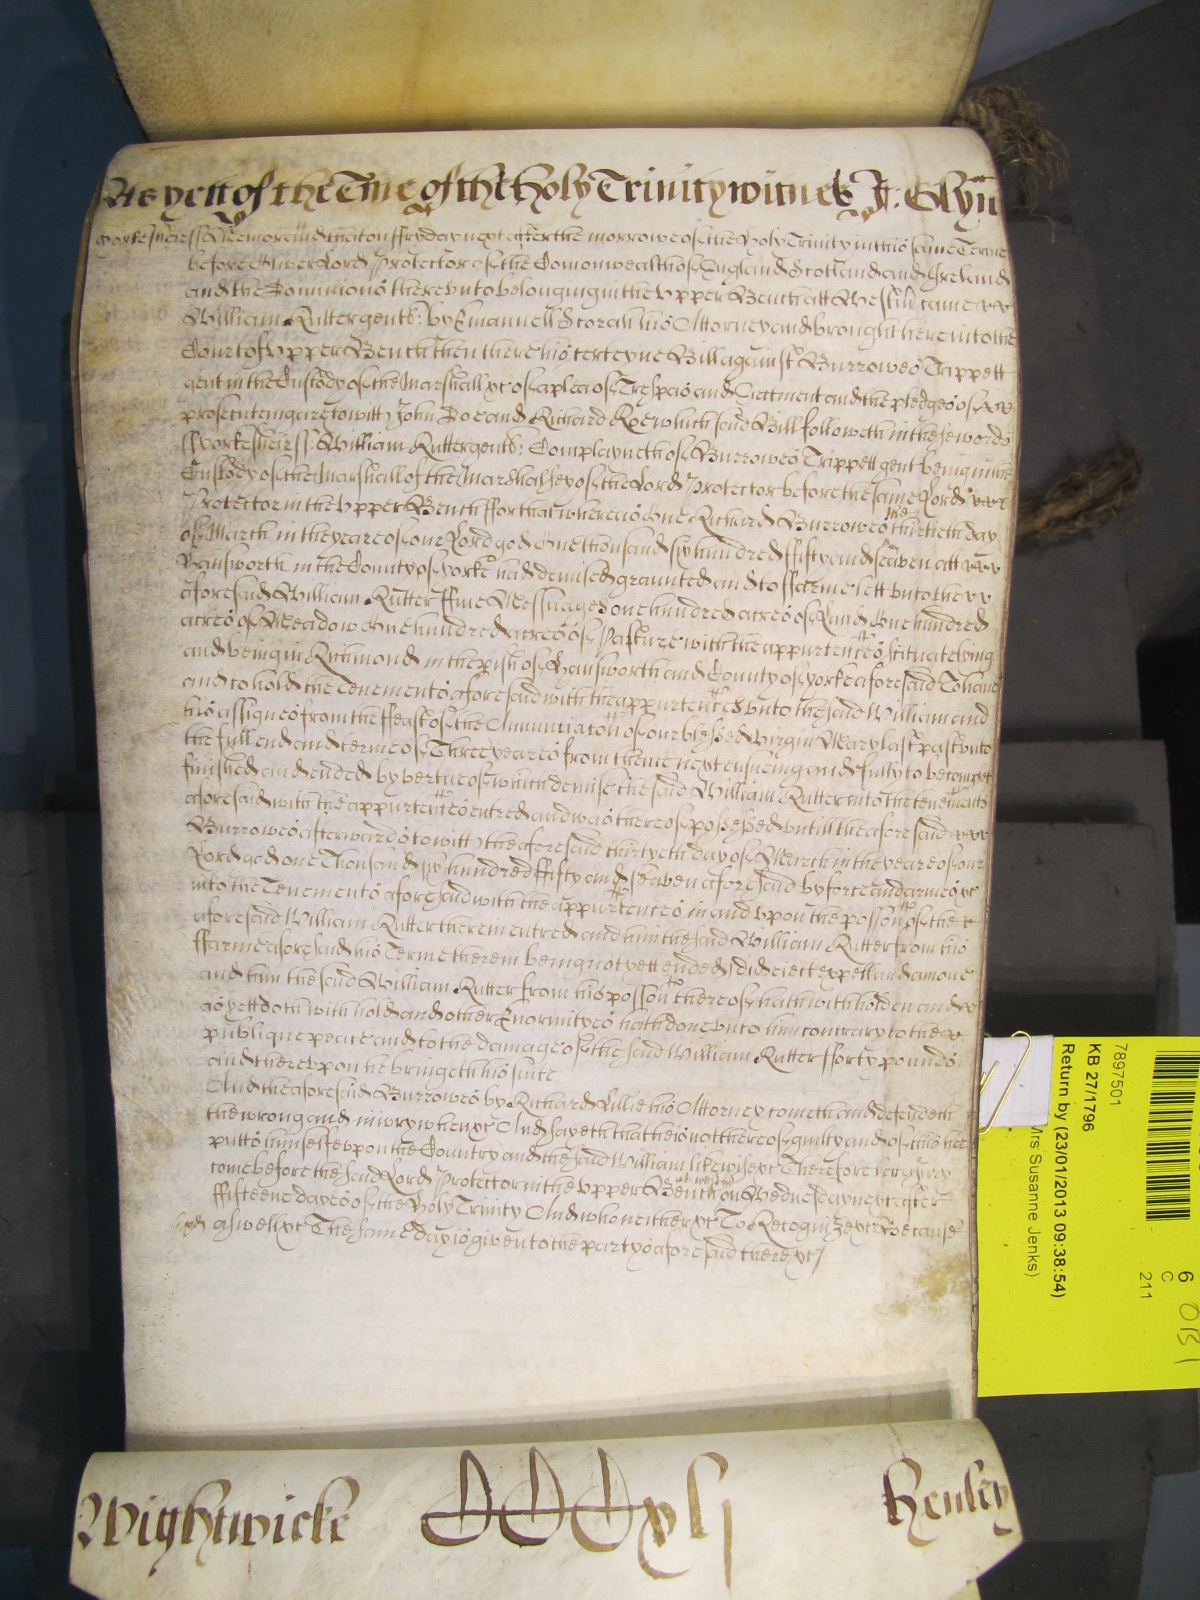 As yett of the Tme of the Holy Trinity witnes J. Glyn
Yorkesheire ss Memorand that on ffryday next after the morrowe of the Holy Trinity in this same Terme
before Oliver Lord Protector of the Comonwealth of England Scotland and Ireland
and the Dominions thereunto belonging in the Upper Bench att Westm came
William Rutter gentl: by Emanuell Scorah his Attorney and brought here into the
Court of Upper Bench then there his certeyne Bill against Burrowes Trippett
gent in the Custody of the Marshall &c of a plea of Trespas and Eiectment and the pledges of
prosecuteing are to witt John Doe and Richard Roe which said Bill followeth in these words
ss Yorkesheir ss William Rutter gentl: Complayneth of Burrowes Trippett gent being in the
Custody of the Marshall of the Marshalsey of the Lord Protector before the same Lord
Protector in the Upper Bench ffor that whereas one Richard Burrowes the thirtieth day
of March in the yeare of our Lord god one thousand six hundred ffifty and seaven att
Hansworth in the County of Yorke had demised graunted and to ffarme lett unto the
aforesaid William Rutter ffive Messuages one hundred acres of Land One hundred
acres of Meadow One hundred acres of Pasture with the appurtences scituate lying
and being in Richmond in the pish of Hansworth and County of Yorke aforesaid To have
and to hold the Tenements aforesaid with the appurtences unto the said William and
his assignes from the ffeast of the Annunciacon of our blessed virgin Mary last past unto
the full end and terme of Three yeares from thence next ensueing and fully to be compet
finished and ended by vertue of which demise the said William Rutter into the tenements
aforesaid with the appurtences entred and was thereof possessed untill the aforesaid
Burrowes afterwards to witt the aforesaid thirtyeth day of March in the yeare of our
Lord god one Thousand six hundred ffifty and seaven aforesaid by force and armes &c
into the Tenements aforesaid with the appurtences in and upon the posson of the
aforesaid William Rutter therein entred and him the said William Rutter from his
ffarme aforesaid his Terme therein being not yett ended did eiect expell and amove
and him the said William Rutter from his posson thereof hath withholden and
as yett doth withhold and other Enormityes hath done unto him contrary to the
publique peace and to the damage of the said William Rutter fforty pounds
and thereupon he bringeth his suite
And the aforesaid Burrowes by Richard Lillie his Attorney cometh and defendeth
the wrong and iniury when &c And sayeth that he is not thereof guilty and of this hee
putts himselfe upon the Country and the said William likewise &c Therefore lett a Jury
come before the said Lord Protector in the Upper Bench att Westm on Wednesday next after
ffifteene dayes of the Holy Trinity And who neither &c To Recognize &c Because
aswell &c The same day is given to the partys aforesaid there &c
Wightwicke
Henley
7897501
KB 27/1796
Return by (23/01/2013 09:38:54)
Mrs Susanne Jenks)
6
C
211